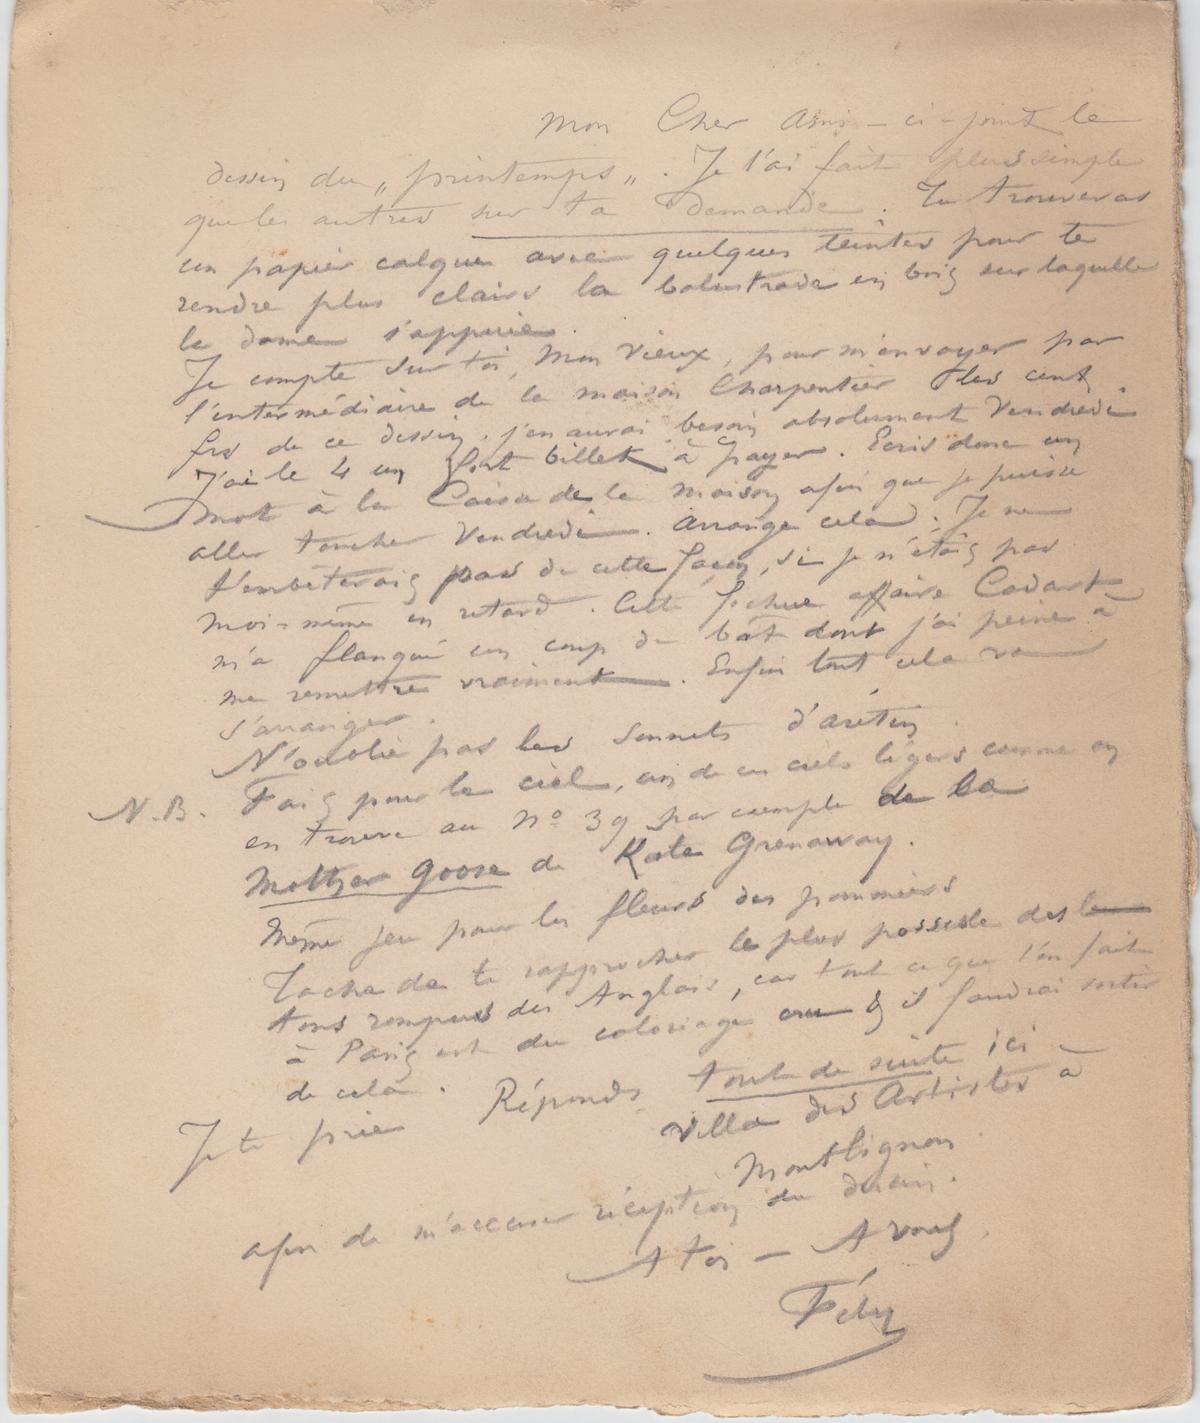 Mon Cher Ami – ci-joint le
dessin du „printemps„. Je l'ai fait plus simple
que les autres sur ta demande. Tu trouveras
un papier calque avec quelques teintes pour te
rendre plus clairs la balustrade en bois sur laquelle
la dame s'appuie.
Je compte sur toi, mon vieux, pour m'envoyer par
l'intermédiaire de la maison Charpentier les cent
frs de ce dessin. j'en aurai besoin absolument Vendredi.
J'ai le 4 un fort billet à payer. Ecris donc un
mot à la Caisse de la maison afin que je puisse
aller toucher Vendredi. Arrange cela. Je ne
t'embêterais pas de cette façon, si je n'étais pas
moi-même en retard. Cette fichue affaire Cadart
m'a flanqué un coup de bât dont j'ai peine à
me remettre vraiment. Enfin tout cela va
s'arranger.
N'oublie pas les Sonnets d'arétin.
N.B. Fais pour le ciel, un de ces ciels légers comme on
en trouve au No 39 par exemple de la
Mother Goose de Kate Grenaway.
Même jeu pour les fleurs des pommiers
Tache de te rapprocher le plus possible des
tons rompus des Anglais, car tout ce que l'on fait
à Paris est du coloriage cru & il faudrai sortir
de cela.
Je te prie Réponds tout de suite ici –
Villa des Artistes à
Montlignon
afin de m'accuser réception du dessin.
A toi – A vous
Fély